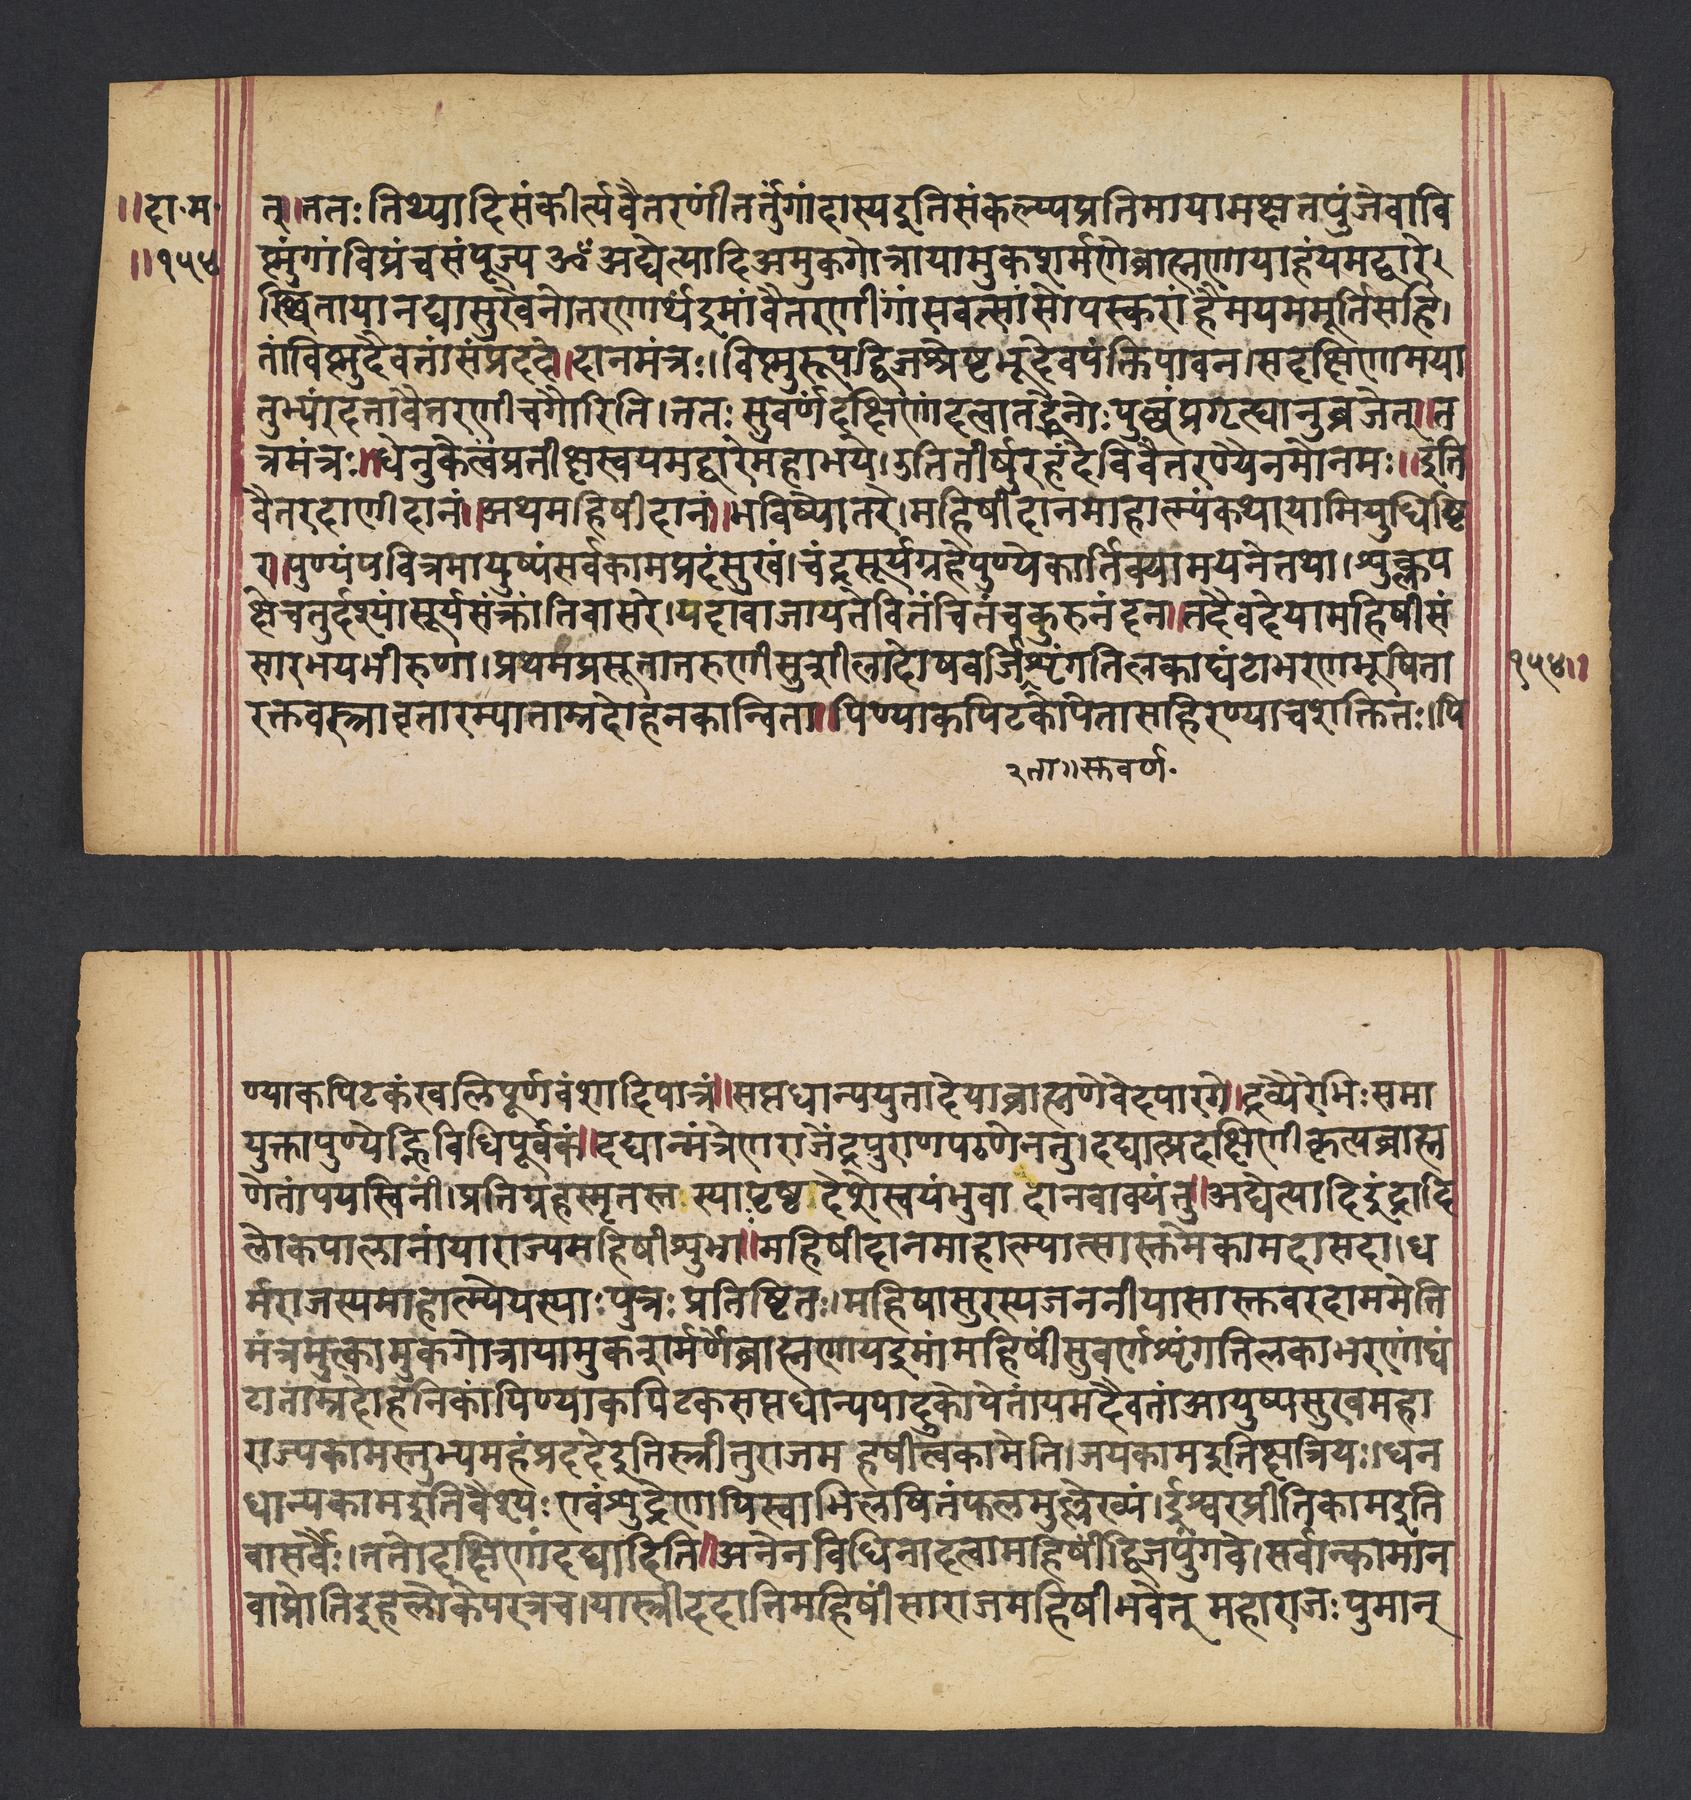 ॥दा॰म॰
॥१५४
त्॥ततः तिथ्यादिसंकीर्त्यवैतरणींतर्तुंगांदास्यइतिसंकल्प्यप्रतिमायामक्षतपुंजेवावि
ष्णुंगांविप्रंचसंपूज्य ॐ अद्येत्यादिअमुकगोत्रायामुकशर्मणेब्राह्मणायाहंयमद्वारे।
स्थितायानद्यासुखेनोतरणार्थंइमांवैतरणींगांसवत्सांसोपस्करांहेममयममूर्तिसहि।
तांविष्णुदैवतांसंप्रददे॥दानमंत्रः।विष्णुरूपद्विजश्रेष्टभूदेवपंक्तिपावन।सदक्षिणामया
तुभ्यंदत्तावैतरणीचगौरिति।ततः सुवर्णंदक्षिणांदत्वातद्धेनोःपुच्छंप्रगृत्द्यानुव्रजेत्॥त
त्रमंत्रः॥धेनुकेत्वंप्रतीक्षस्वयमद्वारेमहाभये।उतितीर्षुरहंदेविवैतरण्यैनमोनमः॥इति
वैतरदाणीदानं॥अथमहिषीदानं॥भविष्योतरे।महिषीदानमाहात्म्यंकथायामियुधिष्टि
र॥पुण्यंपवित्रमायुष्यंसर्वकामप्रदंसुखं।चंद्रसूर्यग्रहेपुण्येकार्तिक्यामयनेतथा।शुक्लप
क्षेचतुर्दश्यांसूर्यसंक्रांतिवासरे।यदावाजायतेवितंचितंचकुरुनंदन॥तदैवदेयामहिषीसं
सारभयभीरुणा।प्रथमप्रसूतातरुणीसुशीलादोषवर्जिशृंगतिलकाघंटाभरणभूषिता
१५४॥
रक्तवस्त्रावृतारम्याताम्रदोहनकान्विता॥पिण्याकपिटकोपेतासहिरण्याचशक्तितः।पि
२ता॥स्तवर्ण॰
ण्याकपिटकंखलिपूर्णवंशादिपात्रं॥सप्तधान्ययुतादेयाब्राह्मणेवेदपारगे॥द्रव्यैरेभिःसमा
युक्तापुण्येह्निविधिपूर्वकं॥दद्यान्मंत्रेणराजेंद्रपुराणपठणेनतु।दद्यात्प्रदक्षिणीकृत्यब्राह्म
णेतांपयस्विनीं।प्रतिग्रहस्मृतस्त स्यापृष्ठ देशेस्वयंभुवा दानवाक्यंतु॥अद्येत्यादिइंद्रादि
लोकपालानांयाराज्यसहिषीशुभा॥महिषीदानमाहात्म्यात्सास्तमेकामदासदा।ध
र्मराजस्यमाहात्म्येयस्याःपुत्रः प्रतिष्टितः।महिषासुरस्यजननीयासास्तवरदाममेति
मंत्रमुत्कामुकगोत्रायामुकशर्मणेब्राह्मणायइमांमहिषींसुवर्णशृंगतिलकाभरणांघं
टाताम्रदोहनिकांपिण्याकपिटकसप्तधान्यपादुकोपेतांयमदैवतांआयुष्यसुखमहा
राज्यकामस्तुभ्यमहंप्रददेइतिस्त्रीतुराजम हषीत्वकामेति।जयकामइतिक्षत्रियः।धन
धान्यकामइतिवैश्यः एवंशुद्रेणापिस्वाभिलषितंफलमुल्लेख्यं।ईश्वरप्रीतिकामइति
वासर्वैः।ततोदक्षिणांदद्यादिति॥अनेनविधिनादत्वामहिषींद्विजपुंगवे।सर्वान्कामान
वाप्नोतिइहलोकेपरत्रच।यास्त्रीददातिमहिषींसाराजमहिषीभवेत् महाराजःपुमान्